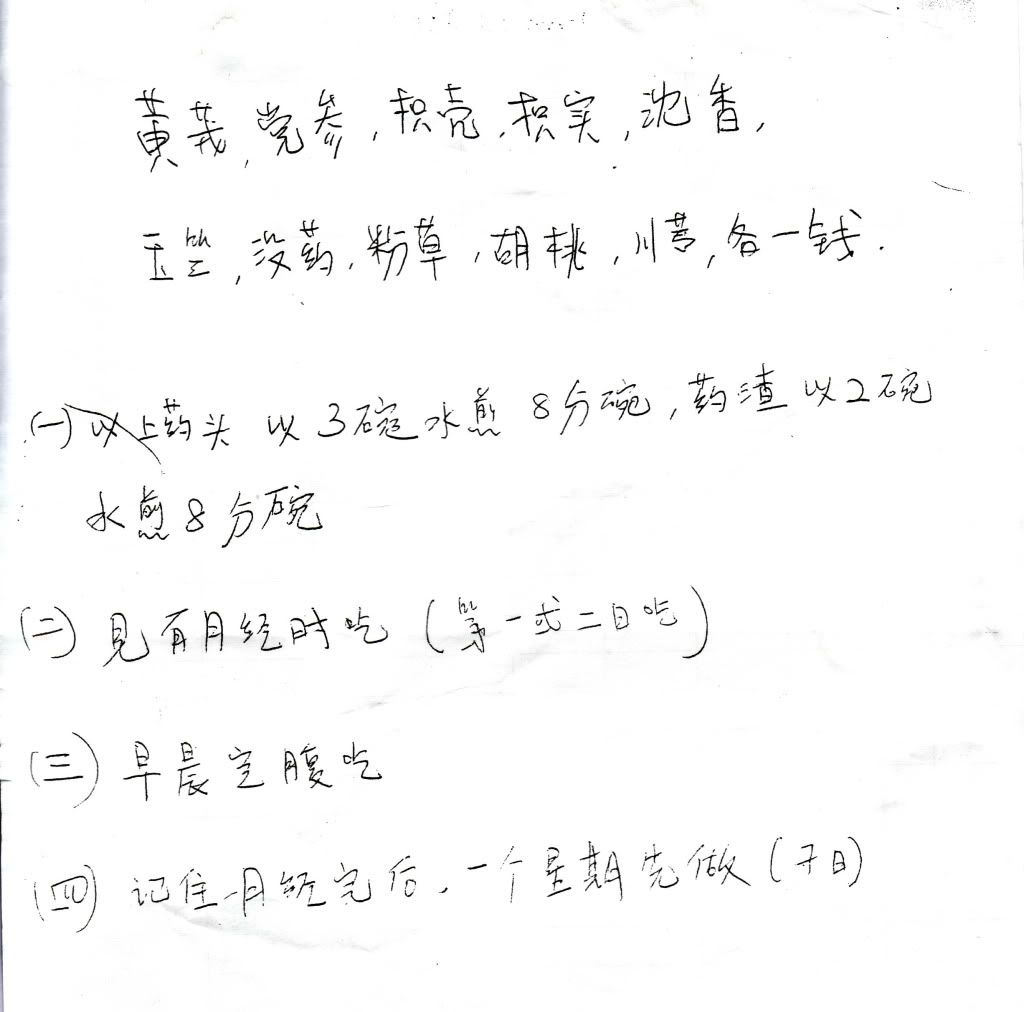 黄芪,党参,枳壳,枳实,沈香,
玉竺,没药,粉草,胡桃,川芎,各一钱.
(一)以上药头 以3碗水煎8分碗,药渣以2碗
水煎8分碗
(二)見有月经时吃(第一或二日吃)
(三)早晨空腹吃
(四)记住月经完后.一个星期先做(7日)